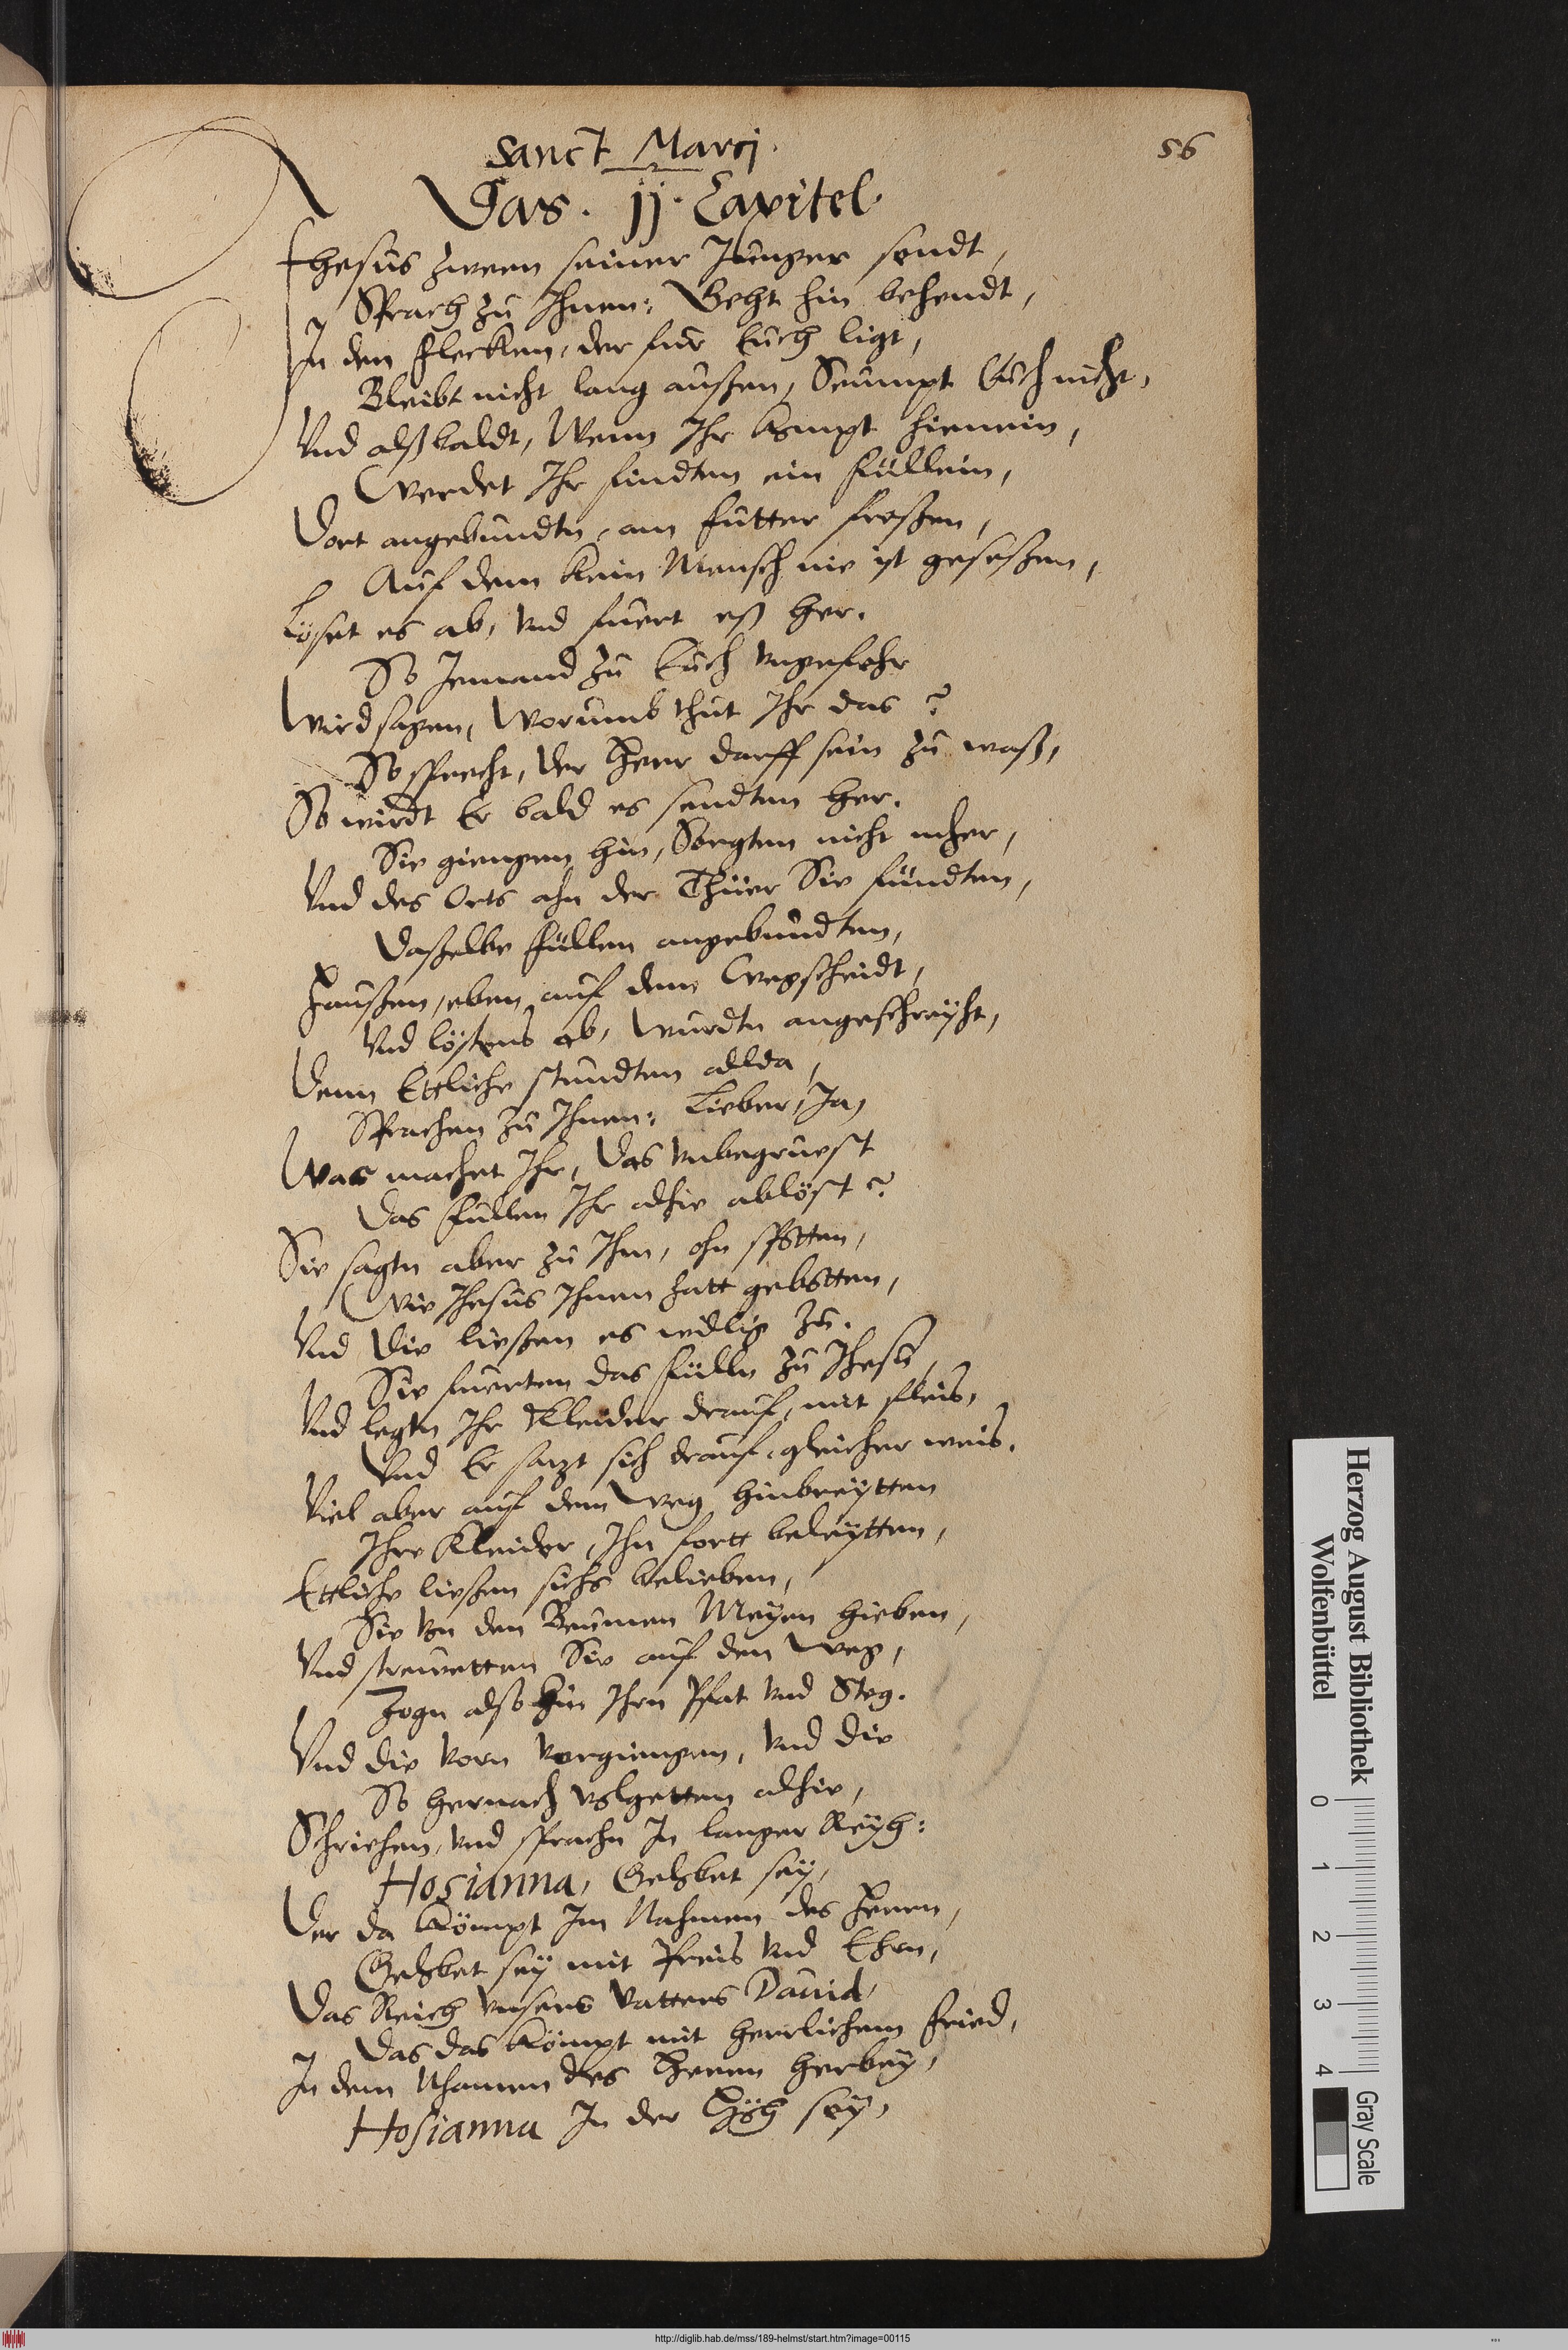 56
Sanct Marcj.
Das. jj. Capitel.
Ihesus zween seiner Junger sendt,
Sprach zu Ihnen: Geht hin behendt,
In den Flecken, der fur Euch ligt,
Bleibt nicht lang außen, Seumpt Euch nicht,
Vnd alßbaldt, Wenn Ihr kompt hienein,
Werdet Ihr findten ein füllein,
Dort angebundtn, am Futter freßen,
Auf dem kein Mensch nie ist geseßen,
Löset es ab, vnd fuert eß her.
So Jemand zu Euch vngefehr
Wird sagen, Worumb thut Ihr das?
So sprecht, der Herr darff sein zu waß,
So wirdt Er bald es sendten her.
Sie giengen hin, Sorgten nicht mher,
Vnd des Orts ahn der Thüer Sie fundten,
Daßelbe Füllen angebundten,
Haußen, eben auf dem Wegscheidt,
Vnd löstens ab, wurdtn angeschreyht,
Denn Ettliche stundten allda,
Sprachen zu Ihnen: Lieber, Ja,
Was machet Ihr, das vnbegruest
Das Füllen Ihr alhie ablöst?
Sie sagtn aber zu Ihn, ohn spotten,
Wie Ihesus Ihnen hatt gebotten,
Vnd die ließen es willig zu.
Sie fuerten das Fülln zu Ihesu,
Vnd legtn Ihr Kleider drauf, mit fleis,
Vnd Er satzt sich drauf, gleicher weis.
Viel aber auf dem Weg hinbreytten
Ihre Kleider, Ihn fortt beleytten,
Ettliche ließen sichs belieben,
Sie von den Beumen Meyen hieben,
Vnd streuetten Sie auf den Weg,
Zogn also hin Ihrn Pfat vnd Steg.
Vnd die vorn vorgiengen, vnd die
So hernach volgetten alhie,
Schriehen, vnd sprachn In langer Reyh:
Hosianna, Gelobet sey,
Der da Kömpt Im Nahmen des Herren,
Gelobet sey mit Preis vnd Ehrn,
Das Reich vnsers Vatters Dauid,
Das das Kömpt mit herrlichem Fried,
In dem Nhamen des Herrn herbey,
Hosianna In der Höh sey,
Herzog August Bibliothek
Wolfenbüttel
0 1 2 3 4
Gray Scale
http://diglib.hab.de/mss/189-helmst/start.htm?image=00115